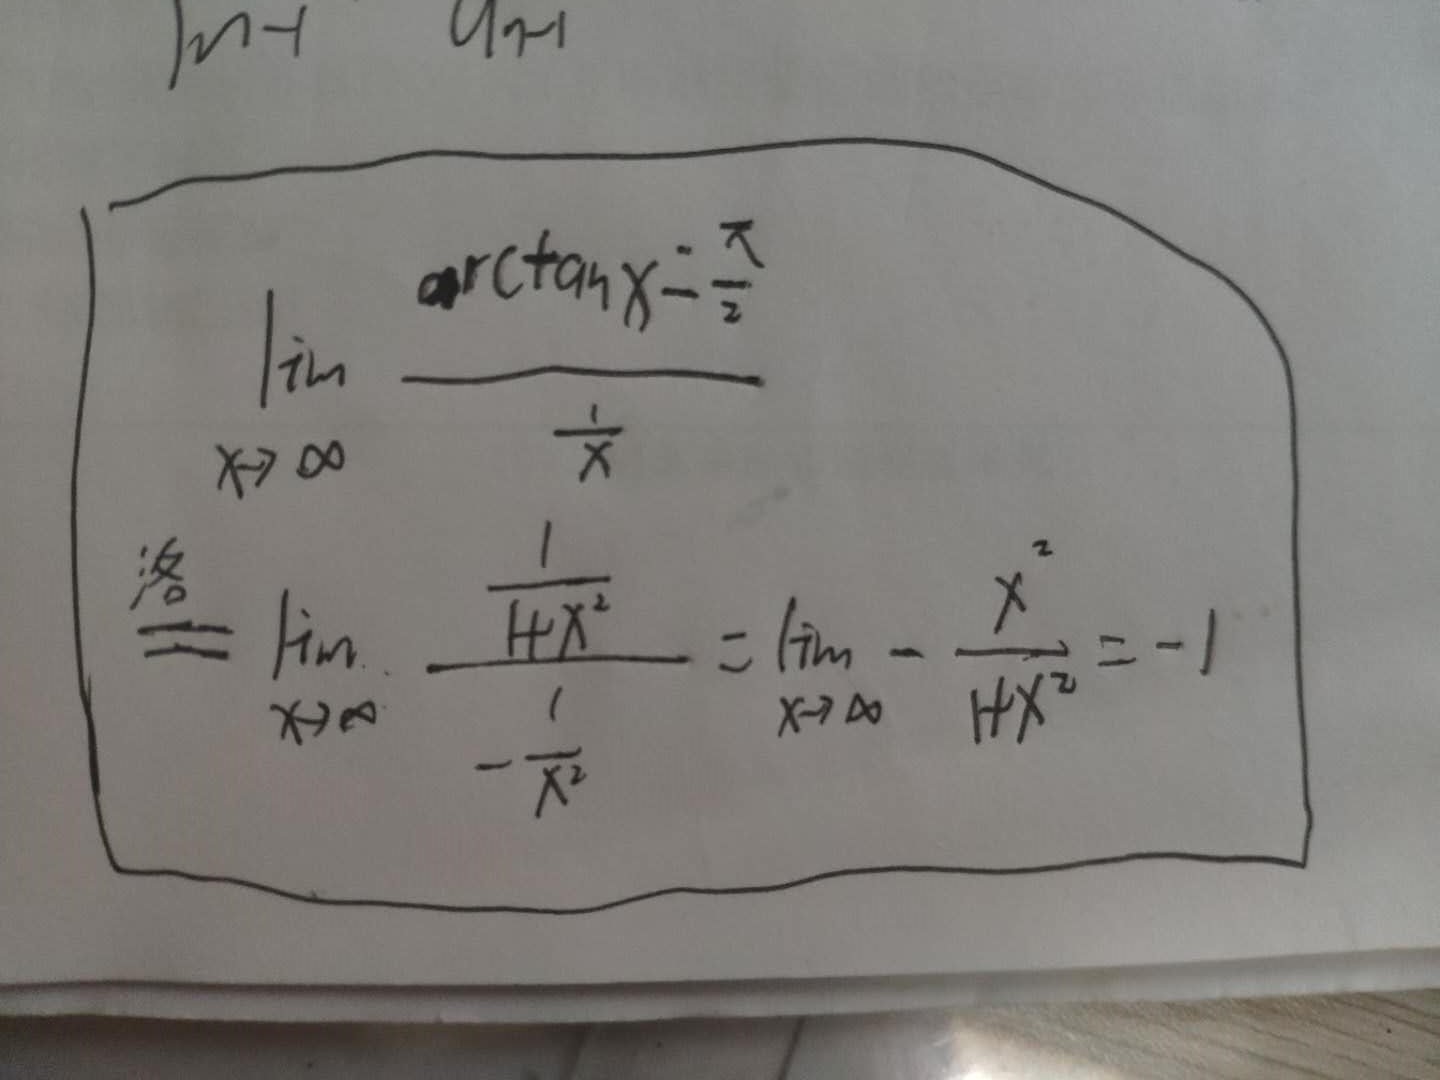 lim x→∞ (arctan x - π/2) / (1/x)
洛 = lim x→∞ (1/(1+x²)) / (-1/x²) = lim x→∞ - x²/(1+x²) = -1